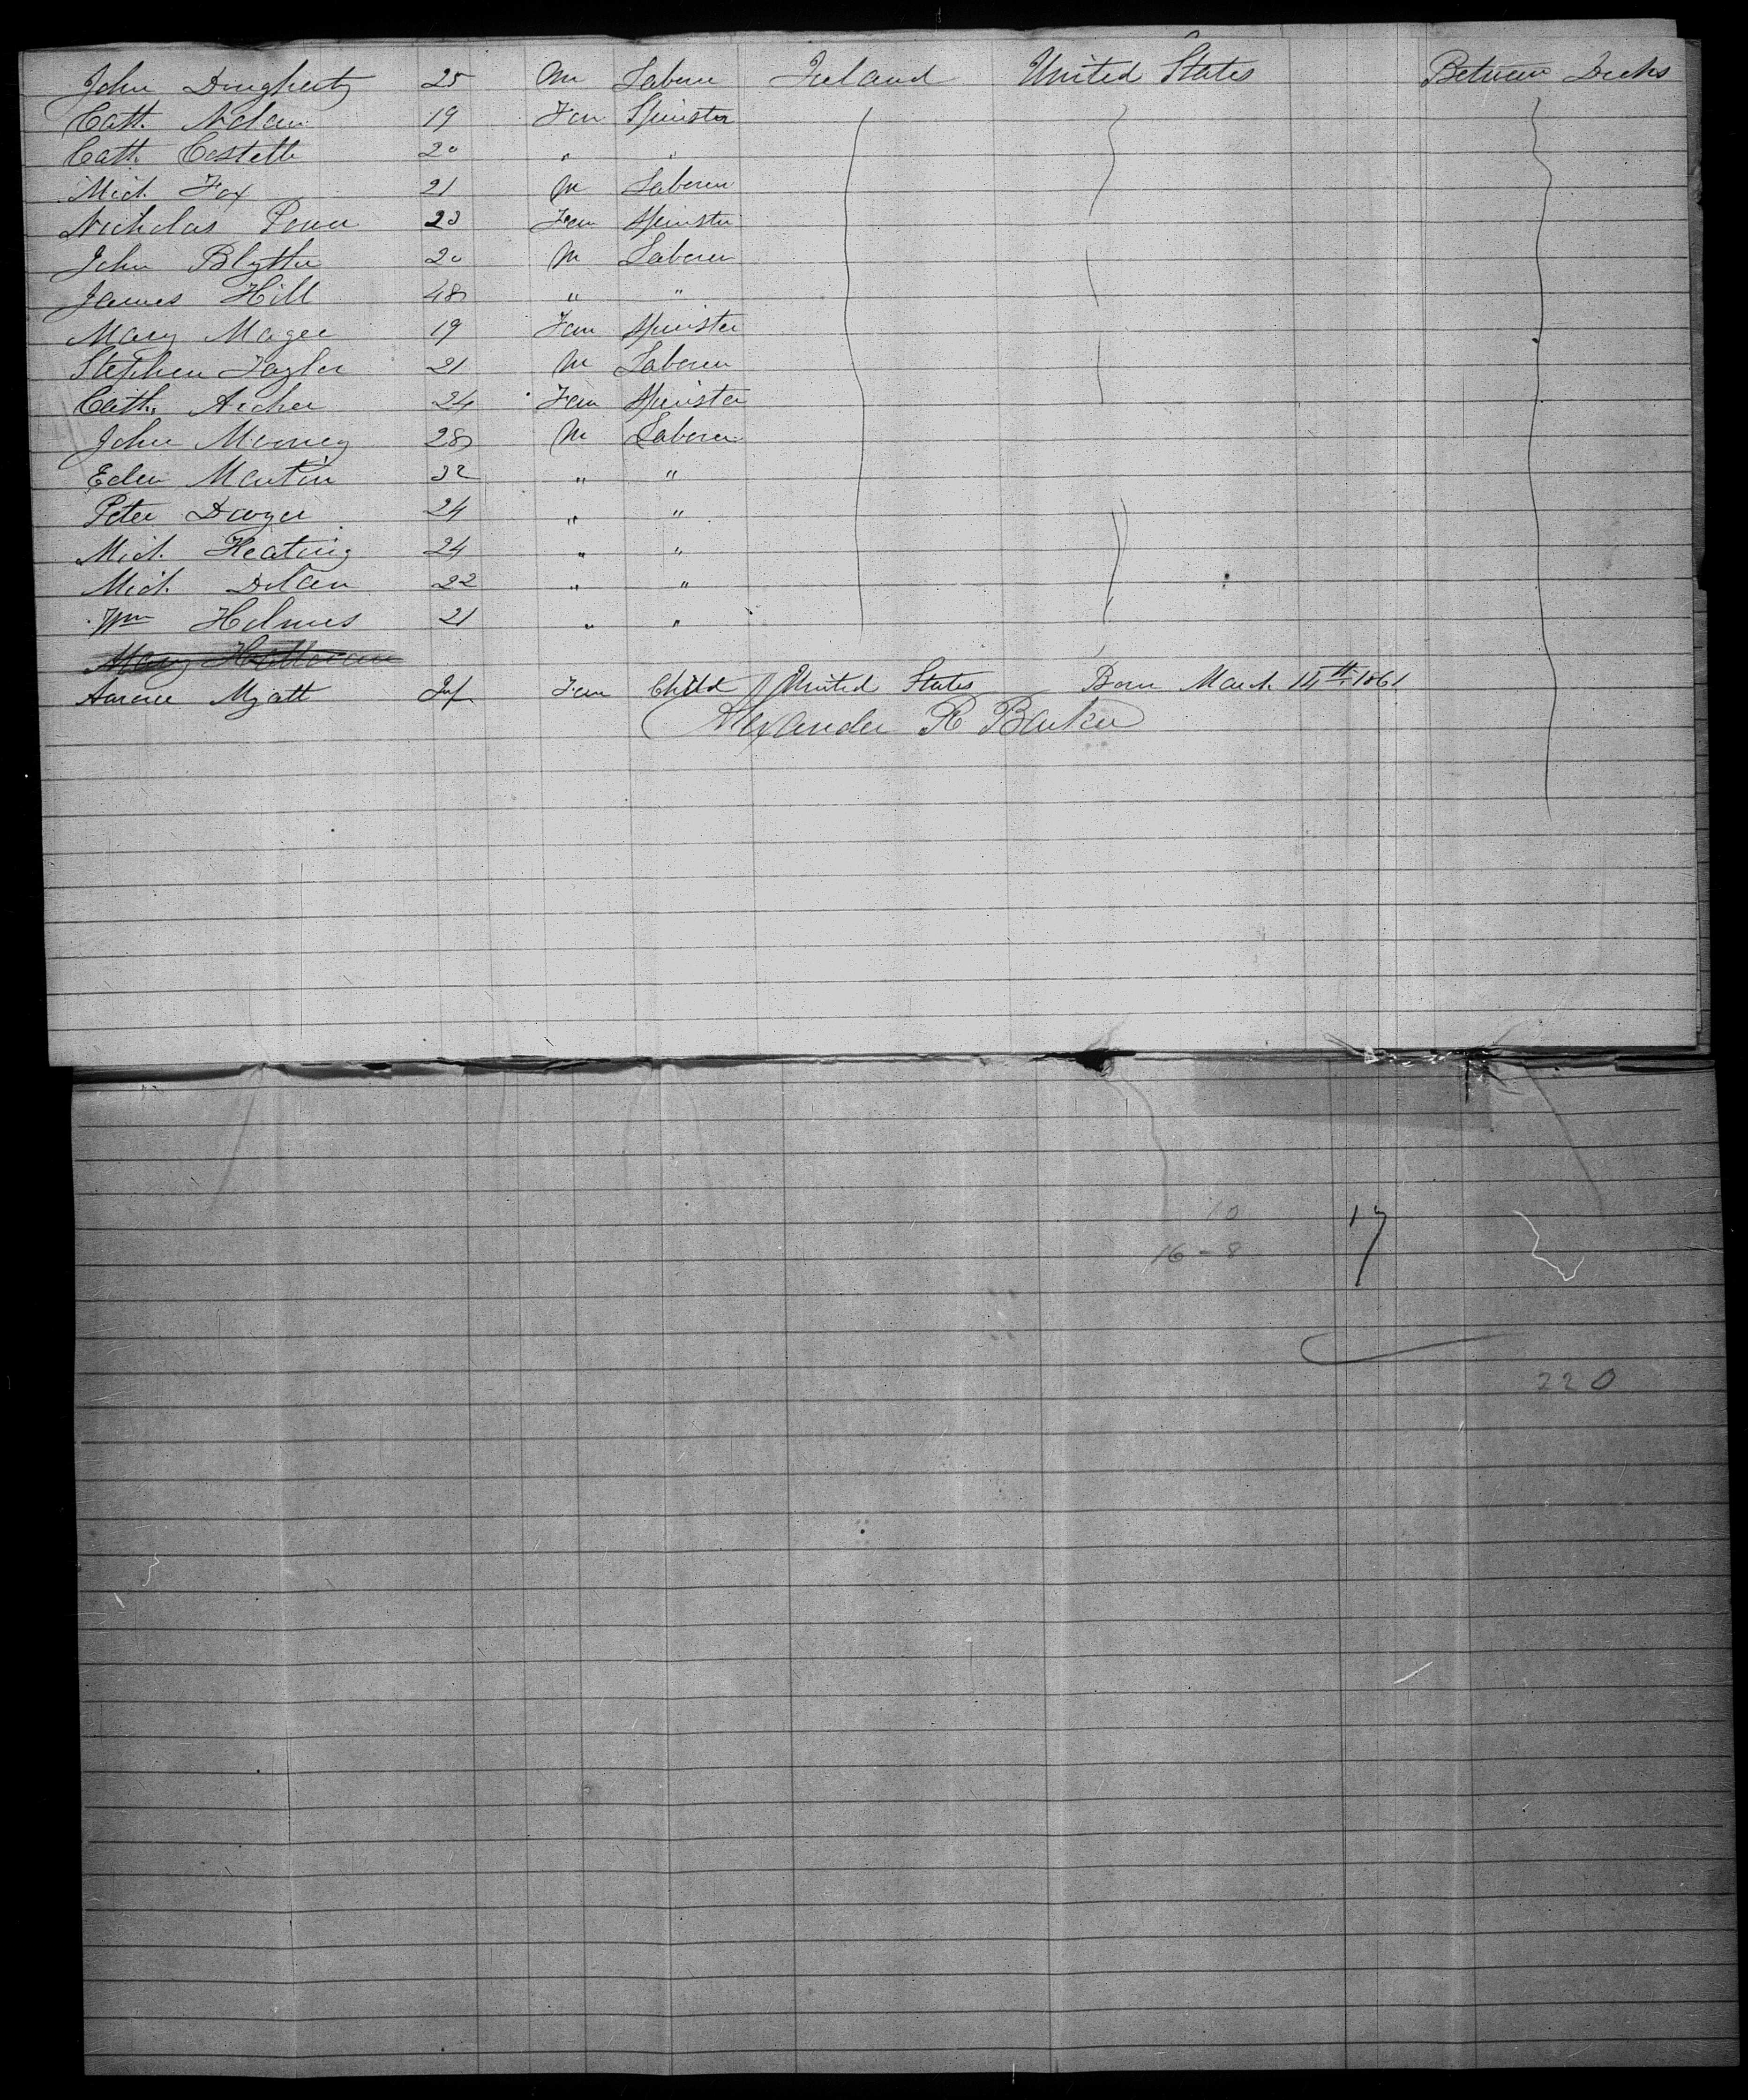 John Dougherty 25 M Laborer Ireland United States Between Decks
Cath. Nolan 19 Fem Spinster
Cath. Costello 20 " "
Mich. Fox 21 M Laborer
Nicholas Power 23 Fem Spinster
John Blythe 20 M Laborer
James Hill 48 " "
Mary Magee 19 Fem Spinster
Stephen Taylor 21 M Laborer
Cath. Archer 24 Fem Spinster
John Mooney 28 M Laborer
Eden Martin 32 " "
Peter Dwyer 24 " "
Mich. Keating 24 " "
Mich. Dolan 22 " "
Wm Holmes 21 " "
Mary Halloran
Myatt Inf Fem Child United States Born March 14th 1861
Alexander R Barker
10 17
16-8
220